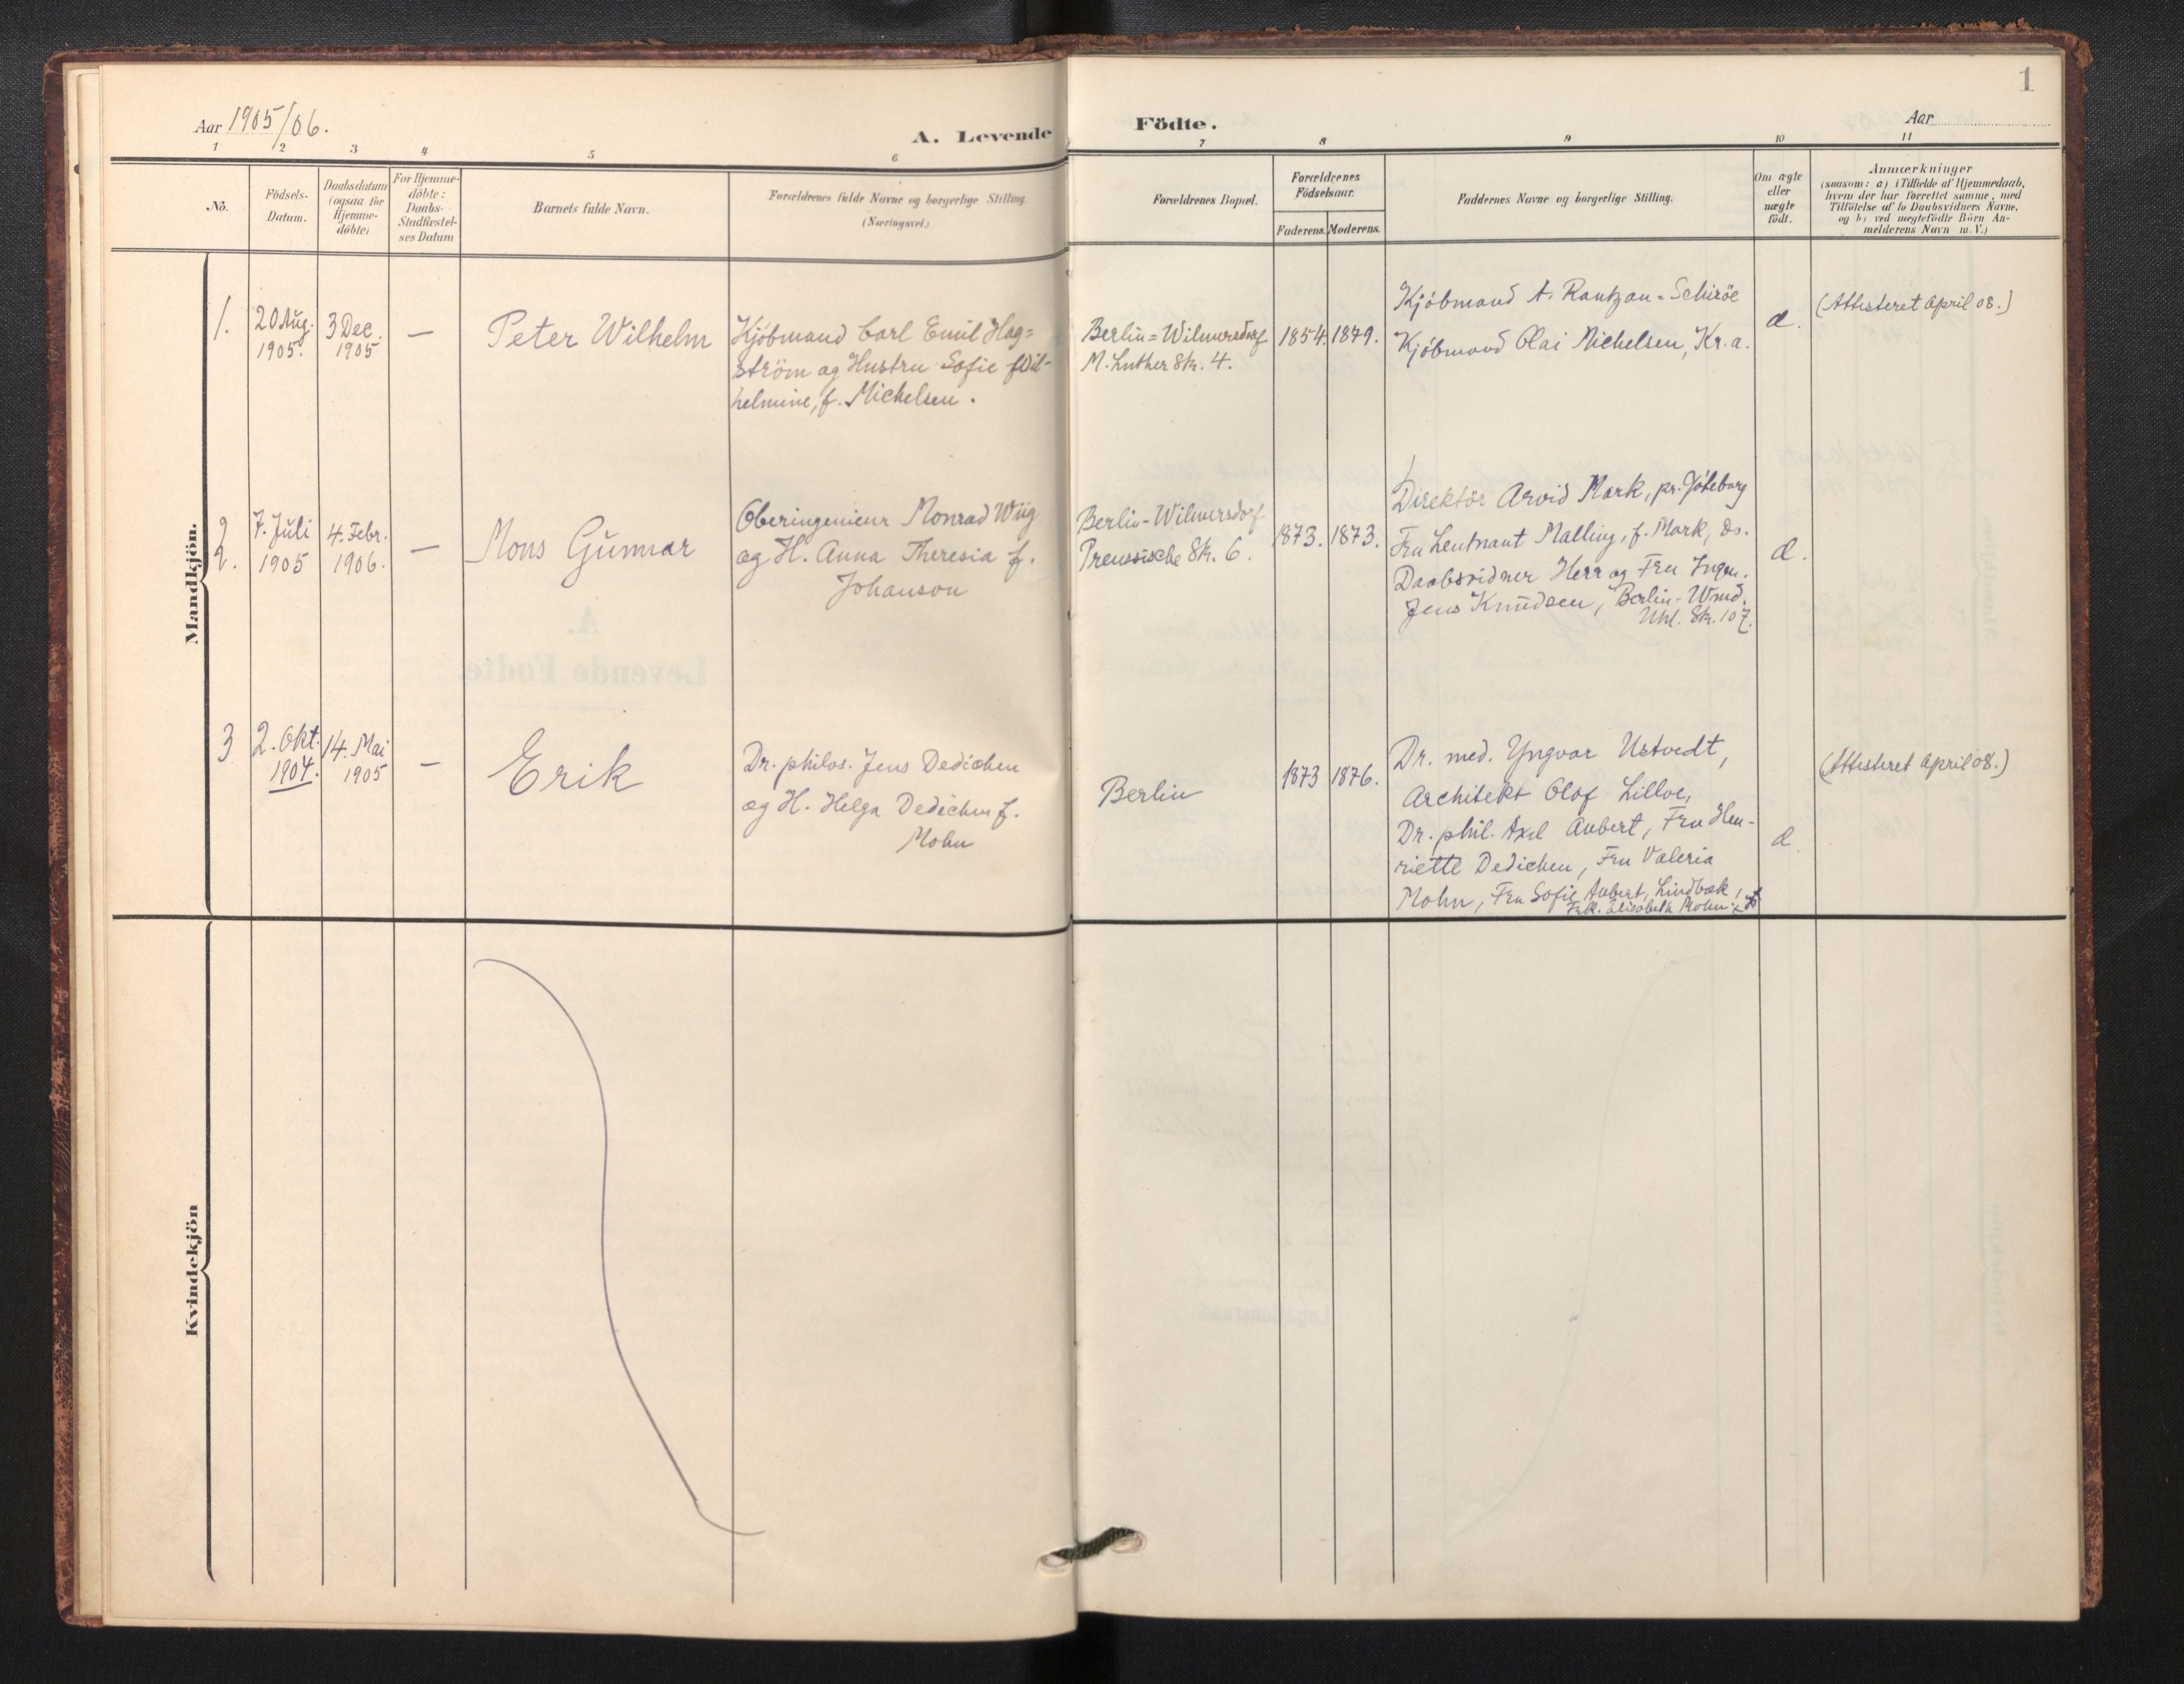 1
Aar 1905/06.
A. Levende Födte.
Aar
1 2 3 4 5 6 7 8 9 10 11
No.
Födsels-
Datum.
Daabsdatum
(ogsaa for
Hjemme-
döbte)
For Hjemme-
döbte:
Daabs-
Stadfæstel-
ses Datum
Barnets fulde Navn.
Forældrenes fulde Navne og borgerlige Stilling.
(Næringsvei.)
Forældrenes Bopæl.
Forældrenes
Födselsaar.
Faderens. Moderens.
Faddernes Navne og borgerlige Stilling.
Om ægte
eller
uægte
födt.
Anmærkninger
(saasom: a) i Tilfælde af Hjemmedaab,
hvem der har forrettet samme, med
Tilföielse af to Daabsvidners Navne,
og b) ved uegtefödte Börn An-
melderens Navn m. V.)
Mandkjön.
1.
20 Aug.
1905.
3 Dec.
1905
—
Peter Wilhelm
Kjöbmand Carl Emil Hag=
ström og Hustru Sofie Wil-
helmine, f. Michelsen.
Berlin=Wilmersdorf
M. Luther Str. 4.
1854. 1879.
Kjöbmand A. Rantzau=Schiröe
Kjöbmand Olai Michelsen, Kr.a.
(Attesteret April 08.)
2.
7. Juli
1905
4. Febr.
1906.
—
Mons Gunnar
Oberingenieur Monrad Wiig
og H. Anna Theresia f.
Johanson
Berlin-Wilmersdorf
Preussische Str. 6.
1873. 1873.
Direktör Arvid Mark, pr. Göteborg
Fru Leutnant Malling, f. Mark, Do.
Daabsvidner Herr og Fru Ingen.
Jens Knudsen, Berlin-Wmd.
Uhl. Str. 107.
3
2. Okt.
1904.
14. Mai
1905
—
Erik
Dr. philos. Jens Dedichen
og H. Helga Dedichen f.
Mohn
Berlin
1873 1876.
Dr. med. Yngvar Ustvedt,
Architekt Olof Lilloe,
Dr. phil. Axel Aubert, Fru Hen-
riette Dedichen, Fru Valeria
Mohn, Fru Sofie Aubert, Lindbæk,
Frk. Elisabeth Mohn.
(Attesteret April 08.)
Kvindekjön